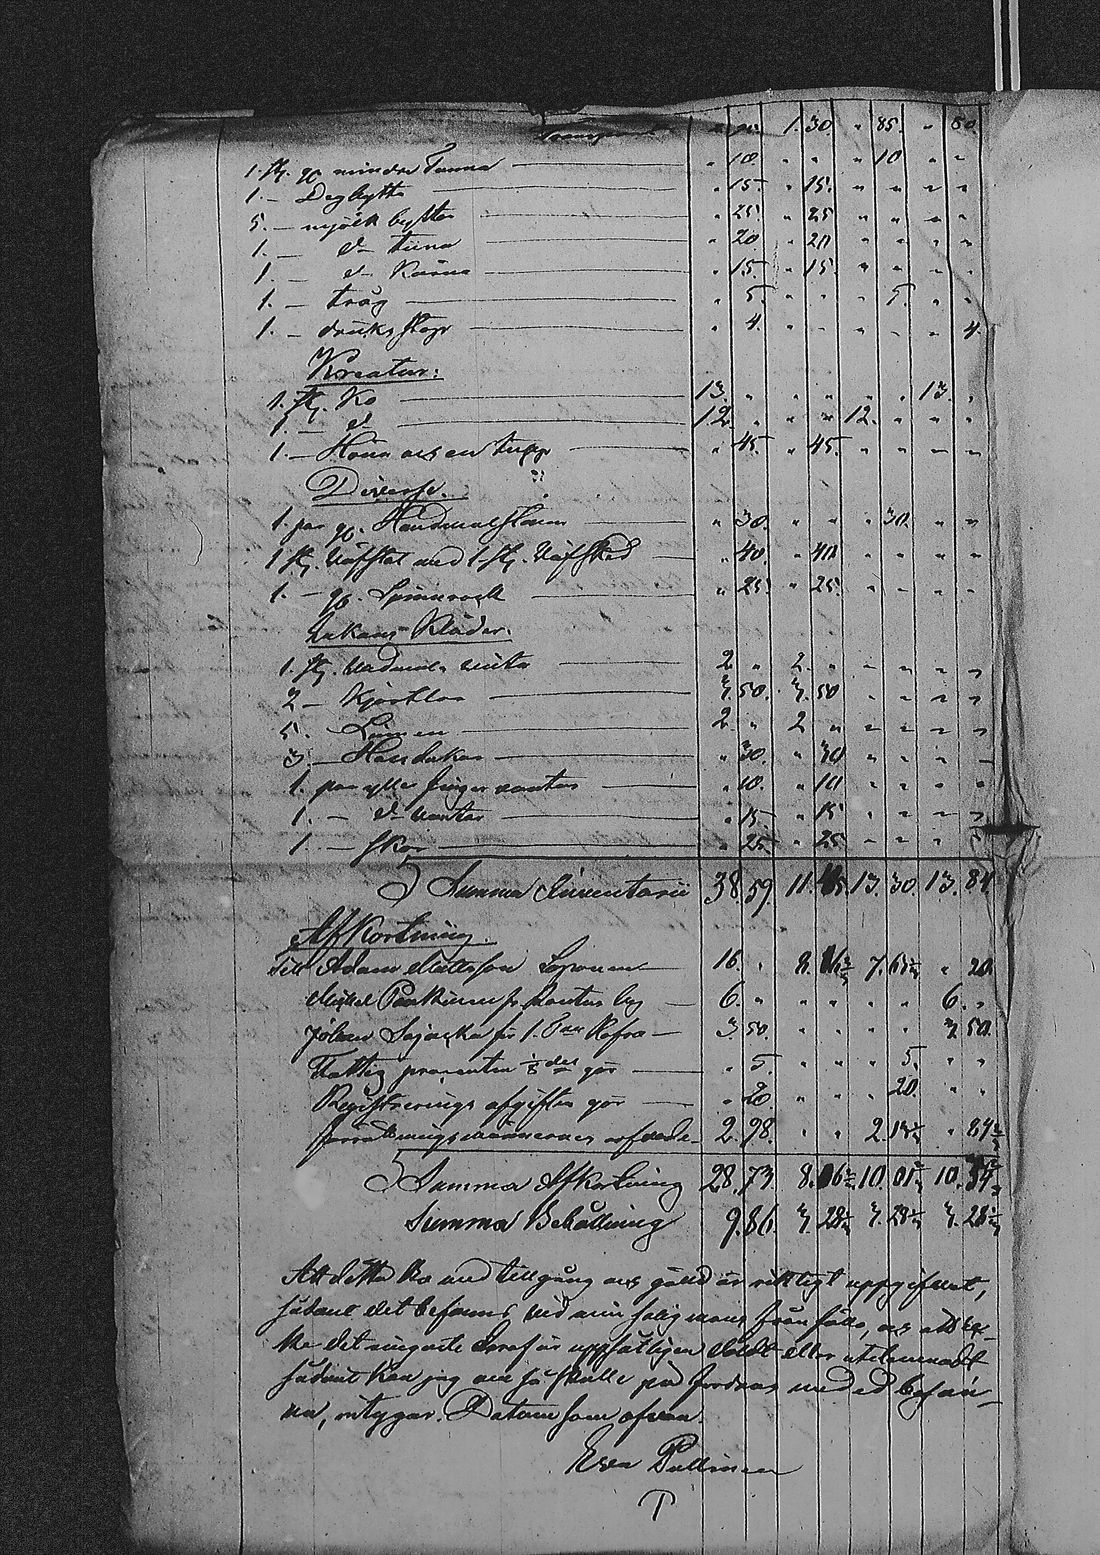 Transport 1. 30. " 85. " 80.
1. st. gl. mindre Tunna " 10. " " " 10 " "
1. – Degbytta " 15. " 15. " " " "
5. – mjölk byttor " 25. " 25 " " " "
1. – d– tiina " 20 " 20 " " " "
1. – d– Kärna " 15. " 15. " " " "
1. – tråg " 5. " " " 5. " "
1. – dricks stop " 4. " " " " " 4.
Kreatur:
1. st. Ko 13. " " " " " 13. "
1. – d– 12. " " " 12. " " "
1. – Höna och en tupp " 45. " 45. " " " "
Diverse.
1. par gl. Handqvarnstenar " 30. " " " 30. " "
1 st. Väfstol med 1. st. Väfsked " 40. " 40. " " " "
1. – gl. Spinnrock " 25. " 25. " " " "
Enkans Kläder.
1. st. Vadmals 2. " 2. " " " " "
2 – Kjortlar 3. 50. 3. 50 " " " "
5. 2. " 2. " " " " "
3. – Handukar " 30. " 30 " " " "
1. par ylle finger vantar " 10. " 10 " " " "
1. – d– vantar " 15. " 15 " " " "
1. – skor " 25. " 25 " " " "
Summa Inventarii 38. 59. 11. 45. 13. 30. 13. 84
Afkortning.
Till Adam Mattsson 16. " 8. 7. " 20.
Mickel 6. " " " " " 6. "
Johan för 1. 3. 50. " " " " 3 50.
Fattig procenten 1/8 del gör " 5. " " " 5. " "
Registrerings afgiften gör " 20 " " " 20. " "
förrättningsmännernes arfvode 2. 98. " " 2. " 84
Summa Afkortning 28. 73. 8. 10. 10.
Summa Behållning 9. 86. 3. 28 3. 28 3. 28
Att detta bo med tillgång och gäld är riktigt uppgifvet,
sådant det befanns vid min salig mans frånfälle, och att ic-
ke det ringaste deraf är uppsåtligen döldt eller utelemnadt
sådant kan jag om så skulle påfordras med ed besan-
na, intygar. Datum som ofvan.
Eva Pullinen